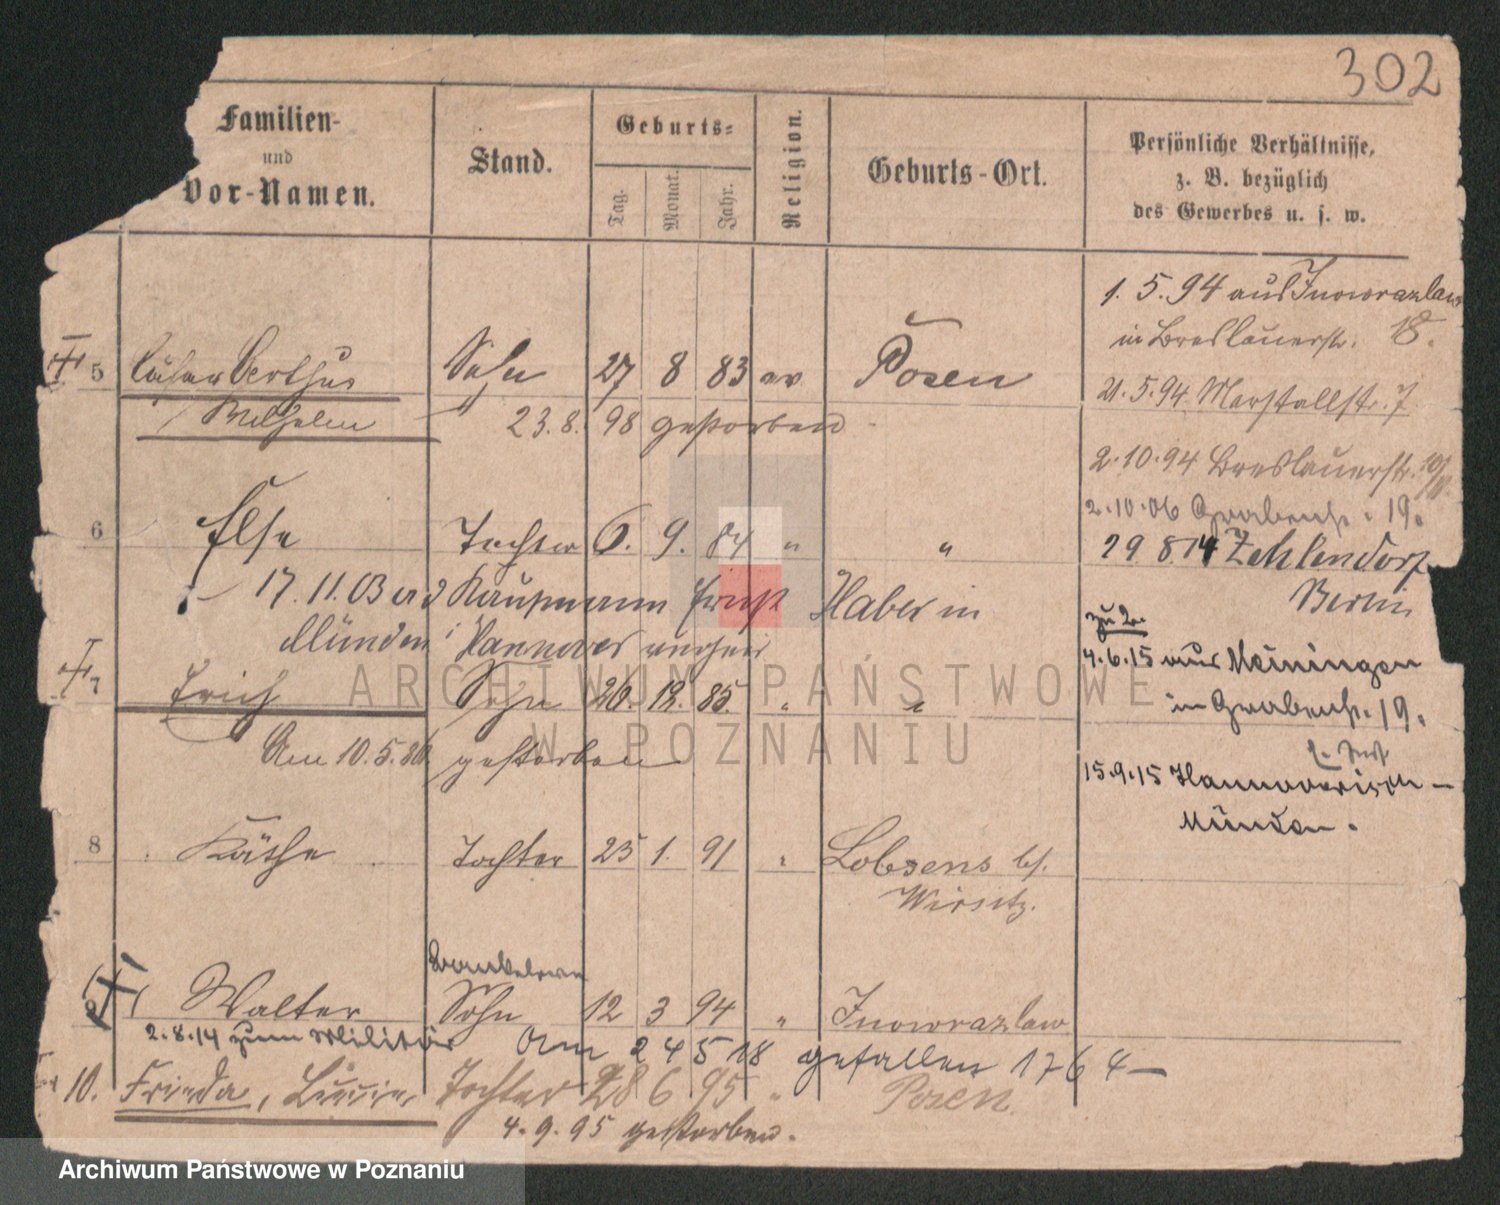 302
Familien-
und
Vor-Namen.
Stand.
Geburts-
Tag.
Monat.
Jahr.
Religion.
Geburts-Ort.
Persönliche Verhältnisse,
z. B. bezüglich
des Gewerbes u. s. w.
1. 5. 94 aus Inowrazlaw
in Breslauerstr. 18.
5 Cäsar Berthus Sohn 27 8 83 ev Posen
Wilhelm " 23. 8. 98 gestorben
21. 5. 94 Marstallstr. 7
2. 10. 94 Breslauerstr.
2. 10. 06 Grabenstr. 19.
6 Else Tochter 6. 9. 84 " "
29 8 14 Zehlendorf
Berlin
17. 11. 03 Kaufmann Ernst Haber in
Münden Hannover
zu 2.
4. 6. 15 aus Meiningen
in Grabenstr. 19.
7 Erich Sohn 26. 12. 85. " "
Am 10. 5. 86 gestorben
15. 9. 15 Hannoverisch-
Münden.
8 Käthe Tochter 25 1. 91 " Lobsens bei
Wirsitz.
9 Walter Sohn 12 3 94 " Inowrazlaw
2. 8. 14 zum Militär Am 24 5 18 gefallen 1764
10. Frieda, Tochter 28 6 95 " Posen.
4. 9. 95 gestorben.
ARCHIWUM PAŃSTWOWE
W POZNANIU
Archiwum Państwowe w Poznaniu